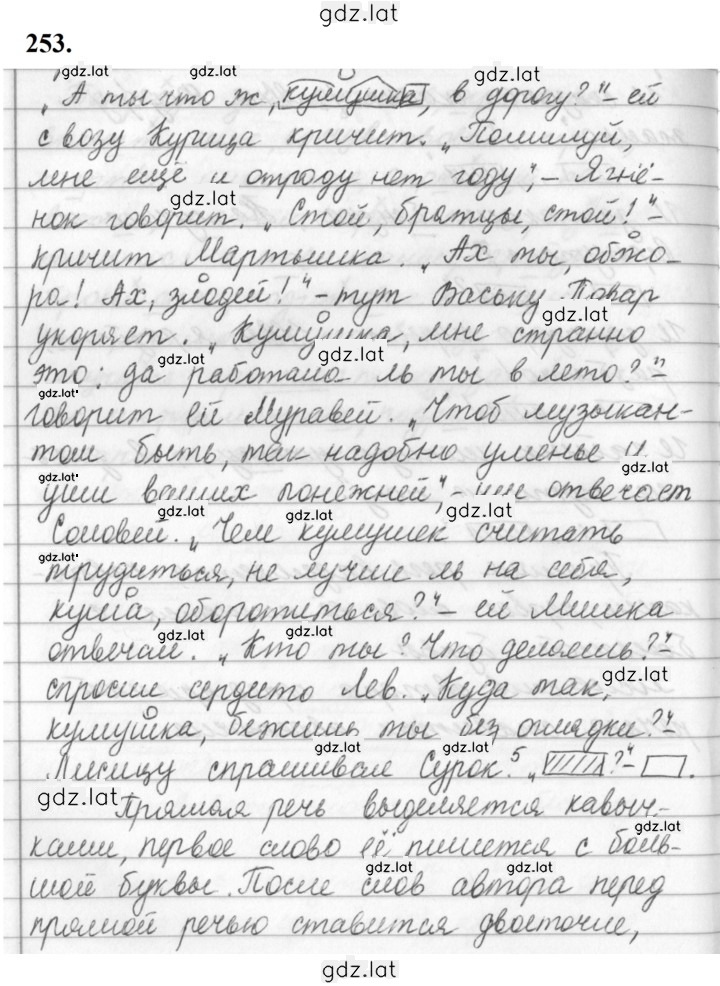 gdz.lat
253.
gdz.lat gdz.lat gdz.lat
„А ты что ж, кумушка, в дорогу?" – ей
с возу Курица кричит. „Помилуй,
gdz.lat gdz.lat
мне ещё и отроду нет году", – Ягнё-
gdz.lat
нок говорит. „Стой, братцы, стой!" –
кричит Мартышка. „Ах ты, обжо-
ра! Ах, злодей!" – тут Ваську Повар
gdz.lat
укоряет. „Кумушка, мне странно
gdz.lat gdz.lat
это: да работала ль ты в лето?" –
говорит ей Муравей. „Чтоб музыкан-
том быть, так надобно уменье и
gdz.lat
уши ваших понежней", – им отвечает
gdz.lat gdz.lat gdz.lat
Соловей. „Чем кумушек считать
gdz.lat
трудиться, не лучше ль на себя,
gdz.lat
кума, оборотиться?" – ей Мишка
gdz.lat gdz.lat
отвечал. „Кто ты? Что делаешь?" –
gdz.lat
спросил сердито Лев. „Куда так,
кумушка, бежишь ты без оглядки?" –
gdz.lat gdz.lat
Лисицу спрашивал Сурок.⁵ „ ?" – .
gdz.lat
Прямая речь выделяется кавыч-
gdz.lat
ками, первое слово её пишется с боль-
gdz.lat gdz.lat
шой буквы. После слов автора перед
прямой речью ставится двоеточие,
gdz.lat